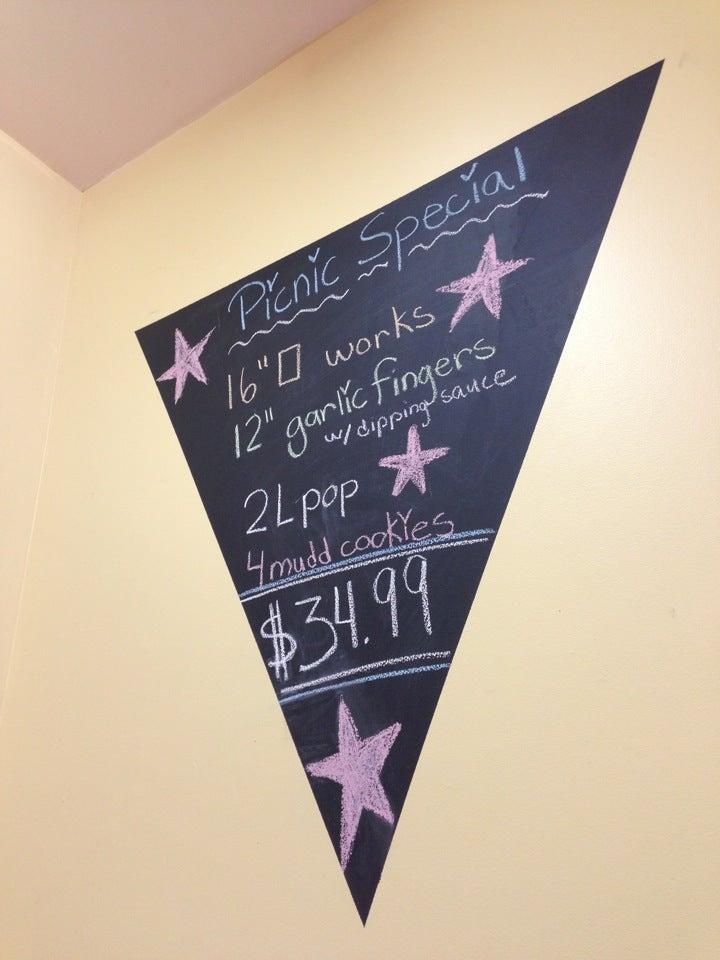 Picnic Special
16"▯ works
12" garlic fingers
w/ dipping sauce
2L pop
4 mudd cookies
$34.99